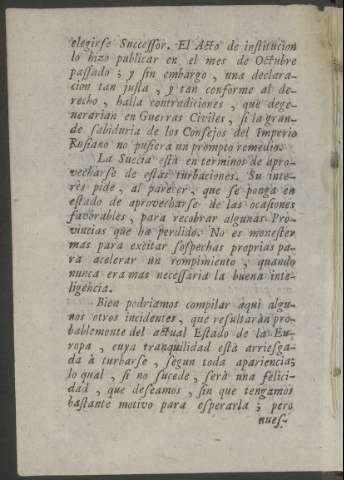 elegirse Successor. El Acto de institucion
lo hizo publicar en el mes de Octubre
passado; y sin embargo, una declara-
cion tan justa, y tan conforme al de-
recho, halla contradiciones, que dege-
nerarian en Guerras Civiles, si la gran-
de sabiduria de los Consejos del Imperio
Rusiano no pusiera un prompto remedio.
La Suecia està en terminos de apro-
vecharse de estas turbaciones. Su inte-
rès pide, al parecer, que se ponga en
estado de aprovecharse de las ocasiones
favorables, para recobrar algunas Pro-
vincias que ha perdido. No es menester
mas para excitar sospechas proprias pa-
ra acelerar un rompimiento, quando
nunca era mas necessaria la buena inte-
ligencia.
Bien podriamos compilar aqui algu-
nos otros incidentes, que resultaràn pro-
bablemente del actual Estado de la Eu-
ropa, cuya tranquilidad està arriesga-
da à turbarse, segun toda apariencia;
lo qual, si no sucede, serà una felici-
dad, que deseamos, sin que tengamos
bastante motivo para esperarla; pero
nues-